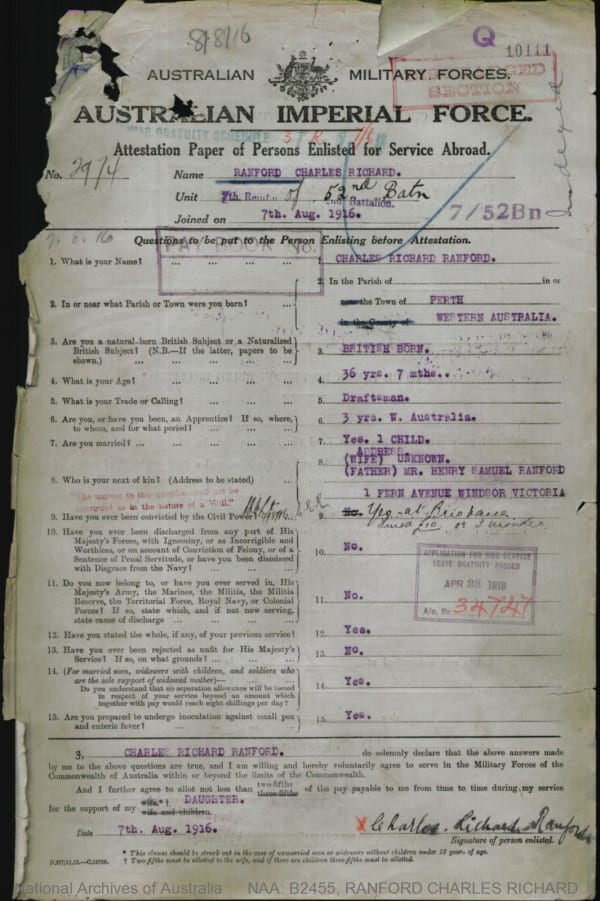 8/8/16
Q
10111
AUSTRALIAN MILITARY FORCES.
SECTION
AUSTRALIAN IMPERIAL FORCE.
WAR GRATUITY SCHEDULE
Attestation Paper of Persons Enlisted for Service Abroad.
No. 2974
Name RANFORD CHARLES RICHARD.
Unit 7th. 52nd Batn
2nd Battalion.
7/52Bn
Joined on 7th. Aug. 1916.
7.8.16
Questions to be put to the Person Enlisting before Attestation.
PAY BOOK No.
1. What is your Name? ... ... ... ... 1. CHARLES RICHARD RANFORD.
2. In or near what Parish or Town were you born? ...
2. In the Parish of in or
the Town of PERTH
in the County of WESTERN AUSTRALIA.
3. Are you a natural-born British Subject or a Naturalised
British Subject? (N.B.—If the latter, papers to be
shown.) ... ... ... ...
3. BRITISH BORN.
4. What is your Age? ... ... ... ... 4. 36 yrs. 7 mths.
5. What is your Trade or Calling? ... ... ... 5. Draftsman.
6. Are you, or have you been, an Apprentice? If so, where,
to whom, and for what period? ... ... ...
6. 3 yrs. W. Australia.
7. Are you married? ... ... ... ... 7. Yes. 1 CHILD.
8. Who is your next of kin? (Address to be stated) ...
ADDRESS
8. (WIFE) UNKNOWN.
(FATHER) MR. HENRY SAMUEL RANFORD
1 FERN AVENUE WINDSOR VICTORIA
"The answer to this question shall not be
construed as in the nature of a Will."
9. Have you ever been convicted by the Civil Power?
9. No. Yes - at Brisbane
fined £10 or 3 months
10. Have you ever been discharged from any part of His
Majesty's Forces, with Ignominy, or as Incorrigible and
Worthless, or on account of Conviction of Felony, or of a
Sentence of Penal Servitude, or have you been dismissed
with Disgrace from the Navy? ... ... ...
10. No.
APPLICATION FOR WAR SERVICE
LEAVE GRATUITY PASSED
APR 23 1919
A/c. No. 34747
11. Do you now belong to, or have you ever served in, His
Majesty's Army, the Marines, the Militia, the Militia
Reserve, the Territorial Force, Royal Navy, or Colonial
Forces? If so, state which, and if not now serving,
state cause of discharge ... ... ...
11. No.
12. Have you stated the whole, if any, of your previous service? 12. Yes.
13. Have you ever been rejected as unfit for His Majesty's
Service? If so, on what grounds? ... ... ...
13. No.
14. (For married men, widowers with children, and soldiers who
are the sole support of widowed mother)— ... ...
Do you understand that no separation allowance will be issued
in respect of your service beyond an amount which
together with pay would reach eight shillings per day?
14. Yes.
15. Are you prepared to undergo inoculation against small pox
and enteric fever? ... ... ... ...
15. Yes.
CHARLES RICHARD RANFORD. do solemnly declare that the above answers made
by me to the above questions are true, and I am willing and hereby voluntarily agree to serve in the Military Forces of the
Commonwealth of Australia within or beyond the limits of the Commonwealth.
And I further agree to allot not less than two-fifths three-fifths of the pay payable to me from time to time during my service
for the support of my wife.*† wife and children. DAUGHTER.
Date 7th. Aug. 1916.
X Charles Richard Ranford
Signature of person enlisted.
* This clause should be struck out in the case of unmarried men or widowers without children under 18 years of age.
† Two-fifths must be allotted to the wife, and if there are children three-fifths must be allotted.
National Archives of Australia NAA: B2455, RANFORD CHARLES RICHARD